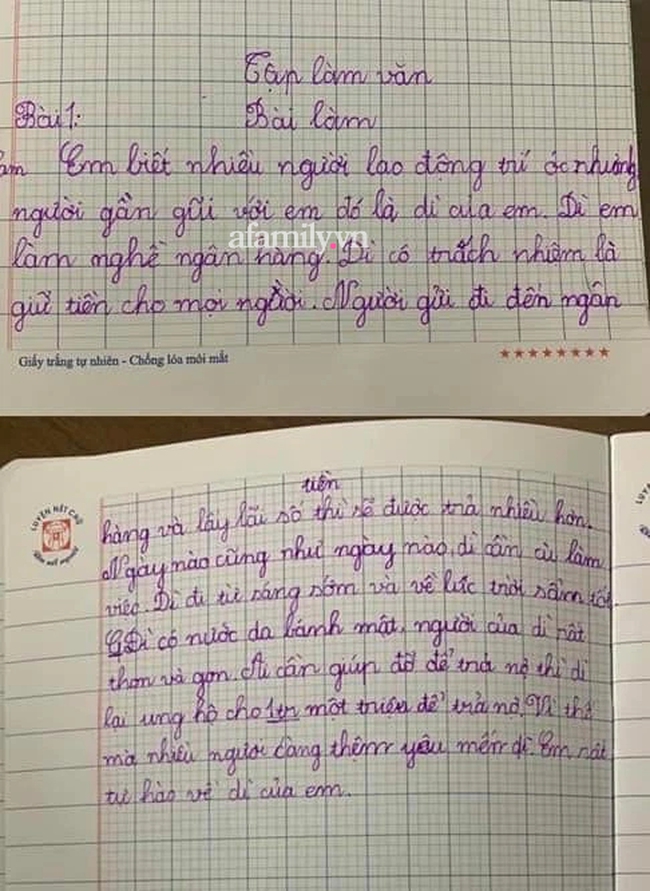 Tập làm văn
Bài 1: Bài làm
Em biết nhiều người lao động trí óc nhưng
người gần gũi với em đó là dì của em. Dì em
làm nghề ngân hàng. Dì có trách nhiệm là
giữ tiền cho mọi người. Người gửi đi đến ngân
afamily.vn
Giấy trắng tự nhiên - Chống lóa mỏi mắt
tiền
hàng và lấy lãi số thì sẽ được trả nhiều hơn.
Ngày nào cũng như ngày nào, dì cần cù làm
việc. Dì đi từ sáng sớm và về lúc trời sẩm tối.
Dì có nước da bánh mật, người của dì rất
thon và gọn. Ai cần giúp đỡ để trả nợ thì dì
lại ủng hộ cho 1tr một triệu để trả nợ. Vì thế
mà nhiều người càng thêm yêu mến dì. Em rất
tự hào về dì của em.
LUYỆN NÉT CHỮ
Rèn nết người
LUYỆ